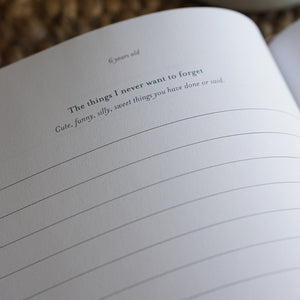 6 years old
The things I never want to forget
Cute, funny, silly, sweet things you have done or said.